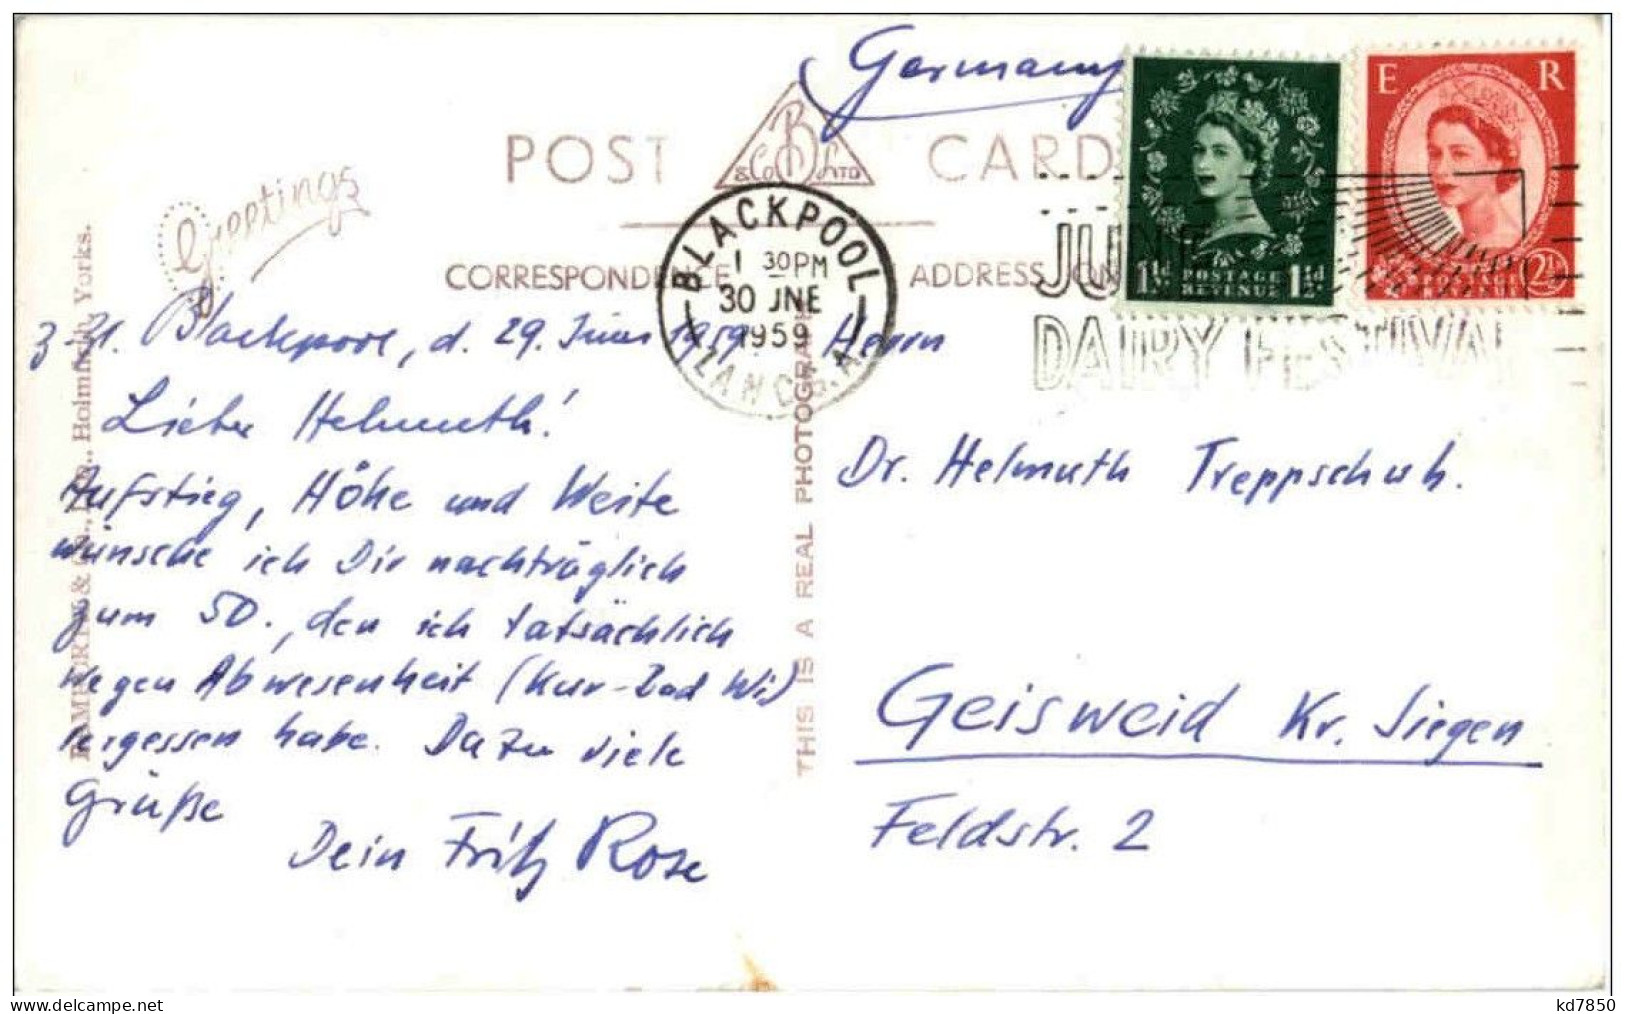 Germany
POST CARD
B
& Co LTD
Greetings
CORRESPONDENCE
ADDRESS ON
BLACKPOOL
1 30 PM
30 JNE
1959
LANCS. A
E R
1½d POSTAGE REVENUE 1½d
2½
JUNE
DAIRY FESTIVAL
BAMFORTH & Co., LTD., Holmfirth, Yorks.
THIS IS A REAL PHOTOGRAPH
z. Zt. Blackpool, d. 29. Juni 1959
Lieber Helmuth!
Aufstieg, Höhe und Weite
wünsche ich Dir nachträglich
zum 50., den ich tatsächlich
wegen Abwesenheit (Kur-Bad Wi)
vergessen habe. Dazu viele
Grüße
Dein Fritz Rose
Herrn
Dr. Helmuth Treppschuh.
Geisweid Kr. Siegen
Feldstr. 2
kd7850